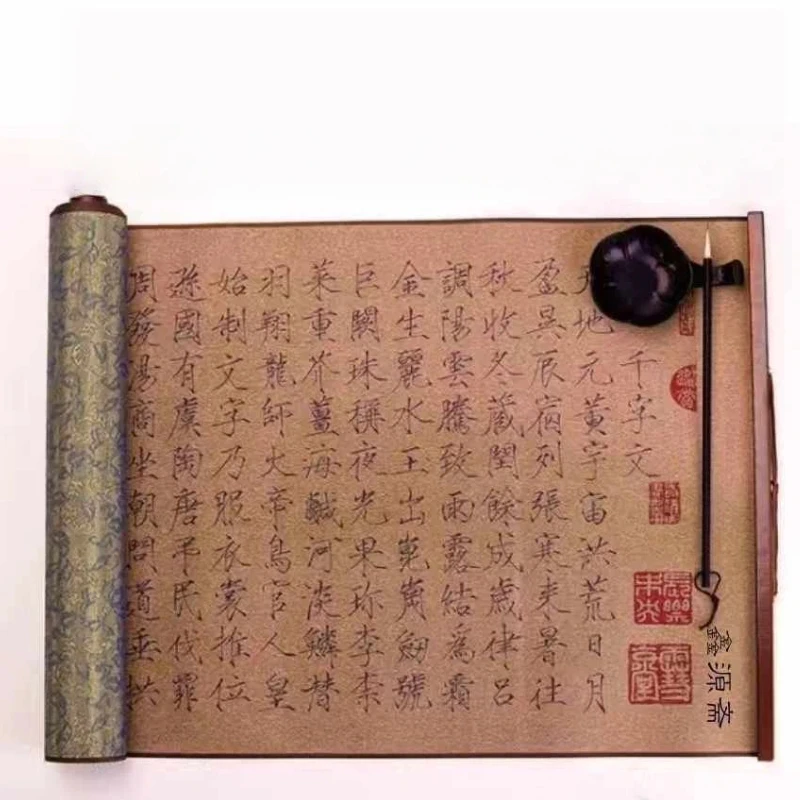 千字文
天地元黃宇宙洪荒日月
盈昃辰宿列張寒来暑往
秋收冬藏閏餘成歲律呂
調陽雲騰致雨露結為霜
金生麗水玉出崑崗劒號
巨闕珠稱夜光果珍李柰
菜重芥薑海鹹河淡鱗潛
羽翔龍師火帝鳥官人皇
始制文字乃服衣裳推位
遜國有虞陶唐弔民伐罪
周發湯商坐朝問道垂拱
長樂未央
鑫源斋